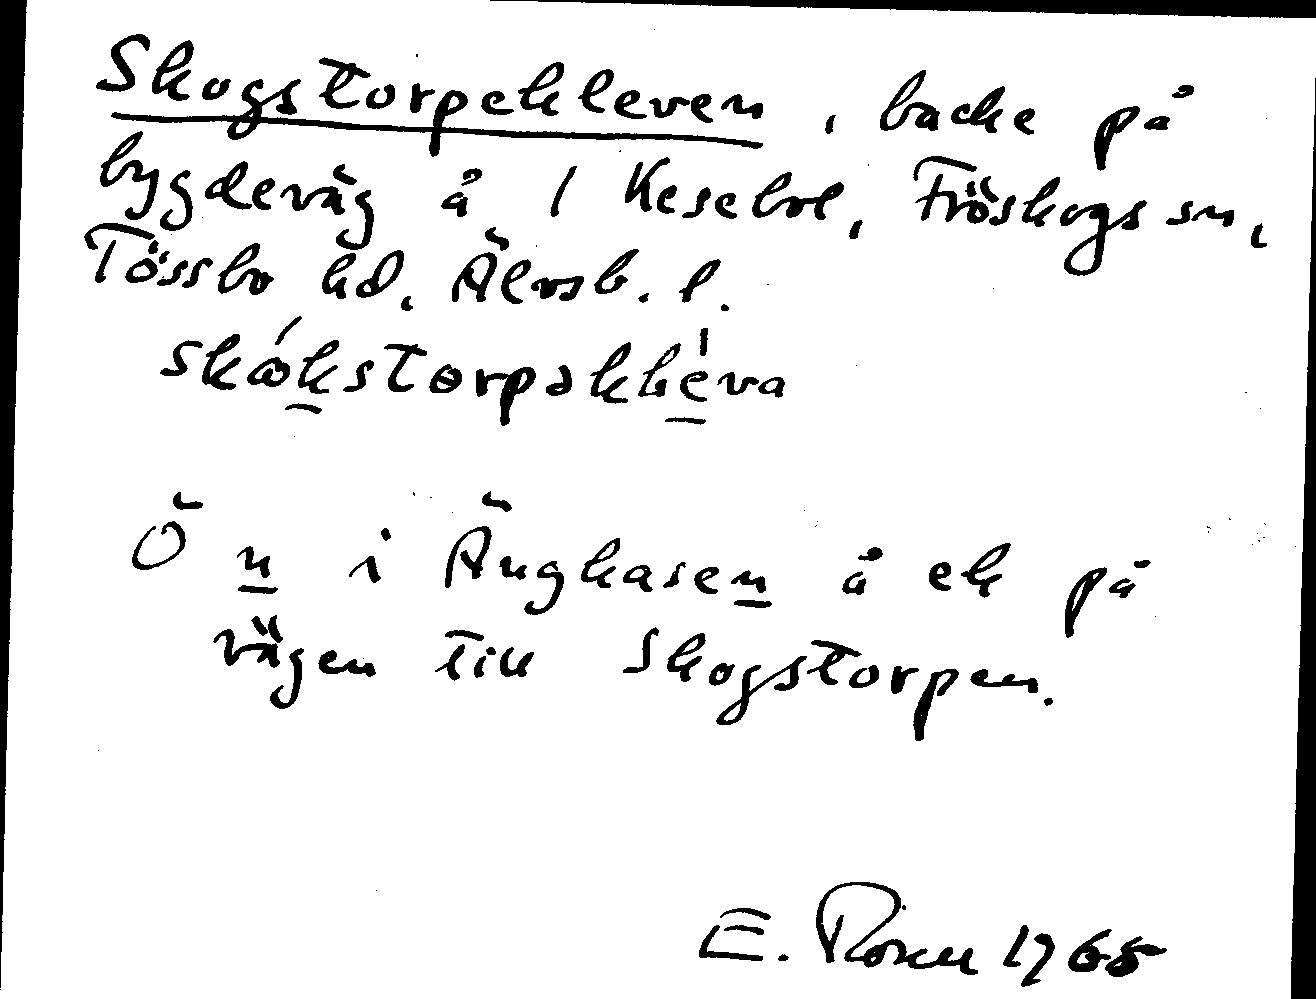 Skogstorpekleven, backe på
bygdeväg å 1 Kesebol, Fröskogs sn,
Tössbo hd, Älvsb. l.
skɷ́kstorpəkléva
Ö n i Ängkasen å ek på
vägen till Skogstorpen.
E. Rosen 1965